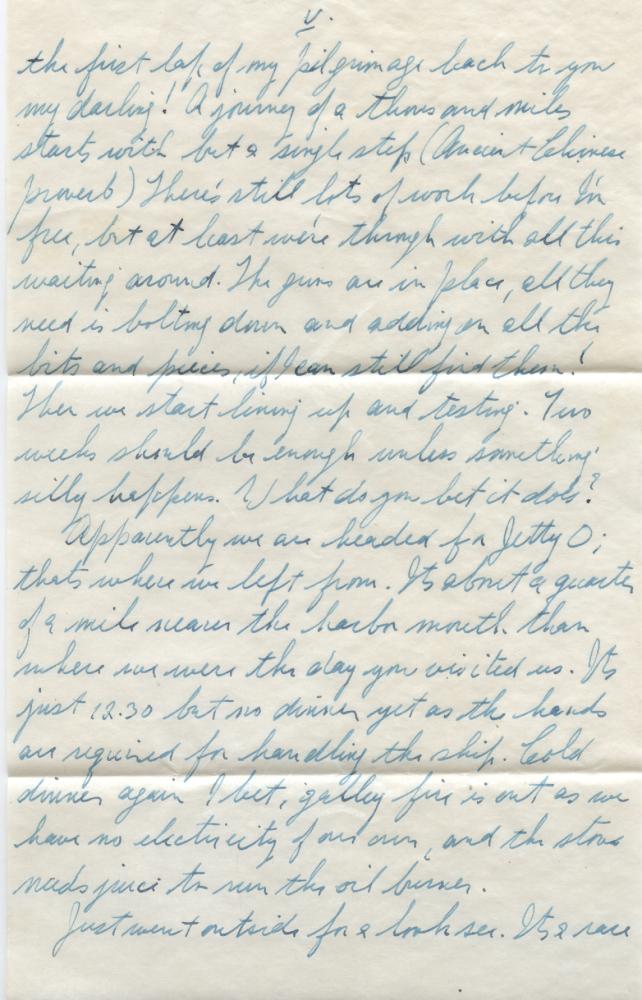 V.
the first lap of my pilgrimage back to you
my darling! A journey of a thousand miles
starts with but a single step (Ancient Chinese
proverb) There's still lots of work before I'm
free, but at least we're through with all this
waiting around. The guns are in place, all they
need is bolting down and adding on all the
bits and pieces, if I can still find them!
Then we start lining up and testing. Two
weeks should be enough unless something
silly happens. What do you bet it does?
Apparently we are headed for Jetty O;
thats where we left from. Its about a quarter
of a mile nearer the harbor mouth than
where we were the day you visited us. Its
just 12.30 but no dinner yet as the hands
are required for handling the ship. Cold
dinner again I bet, galley fire is out as we
have no electricity of our own, and the stove
needs juice to run the oil burner.
Just went outside for a look see. Its a race